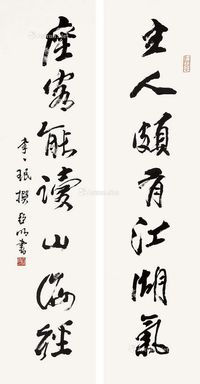 主人頗有江湖氣
座客能讀山海經
李一氓撰 亞明書